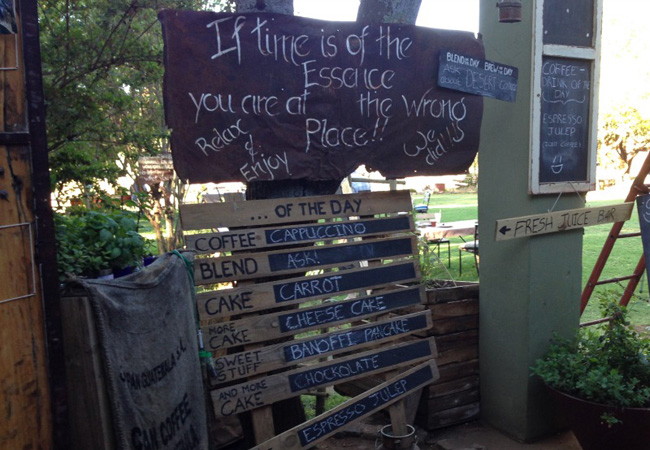 If time is of the
Essence
you are at the Wrong
Place!!
Relax
&
Enjoy
We
did!!!
BLEND OF THE DAY BREW OF THE DAY
ASK DESERT
COFFEE -
DRINK OF THE
DAY
ESPRESSO
JULEP
FRESH JUICE BAR
... OF THE DAY
COFFEE CAPPUCCINO
BLEND ASK!
CAKE CARROT
MORE
CAKE CHEESE CAKE
SWEET
STUFF BANOFFI PANCAKE
AND MORE
CAKE CHOCKOLATE
ESPRESSO JULEP
GUATEMALA
COFFEE